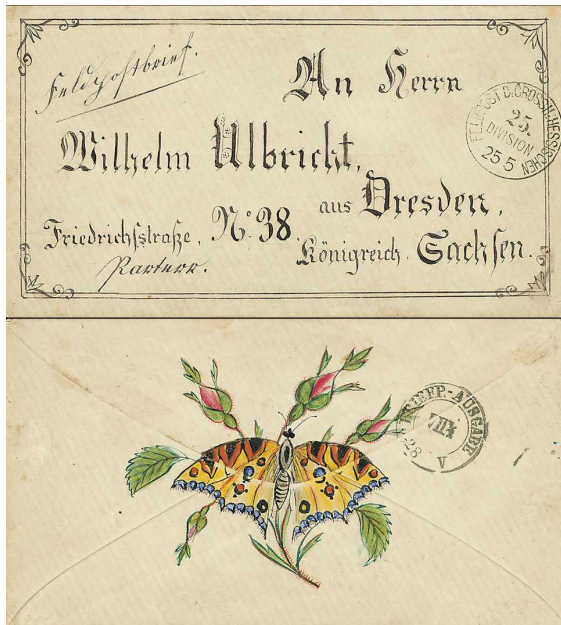 Feldpostbrief.
An Herrn
Wilhelm Ulbricht,
aus Dresden,
Friedrichsstraße, No: 38.
Königreich Sachsen.
Parterr.
FELDPOST D. GROSSH. HESSISCHEN
25.
DIVISION
25 5
BRIEFP.-AUSGABE
VIII
28 V